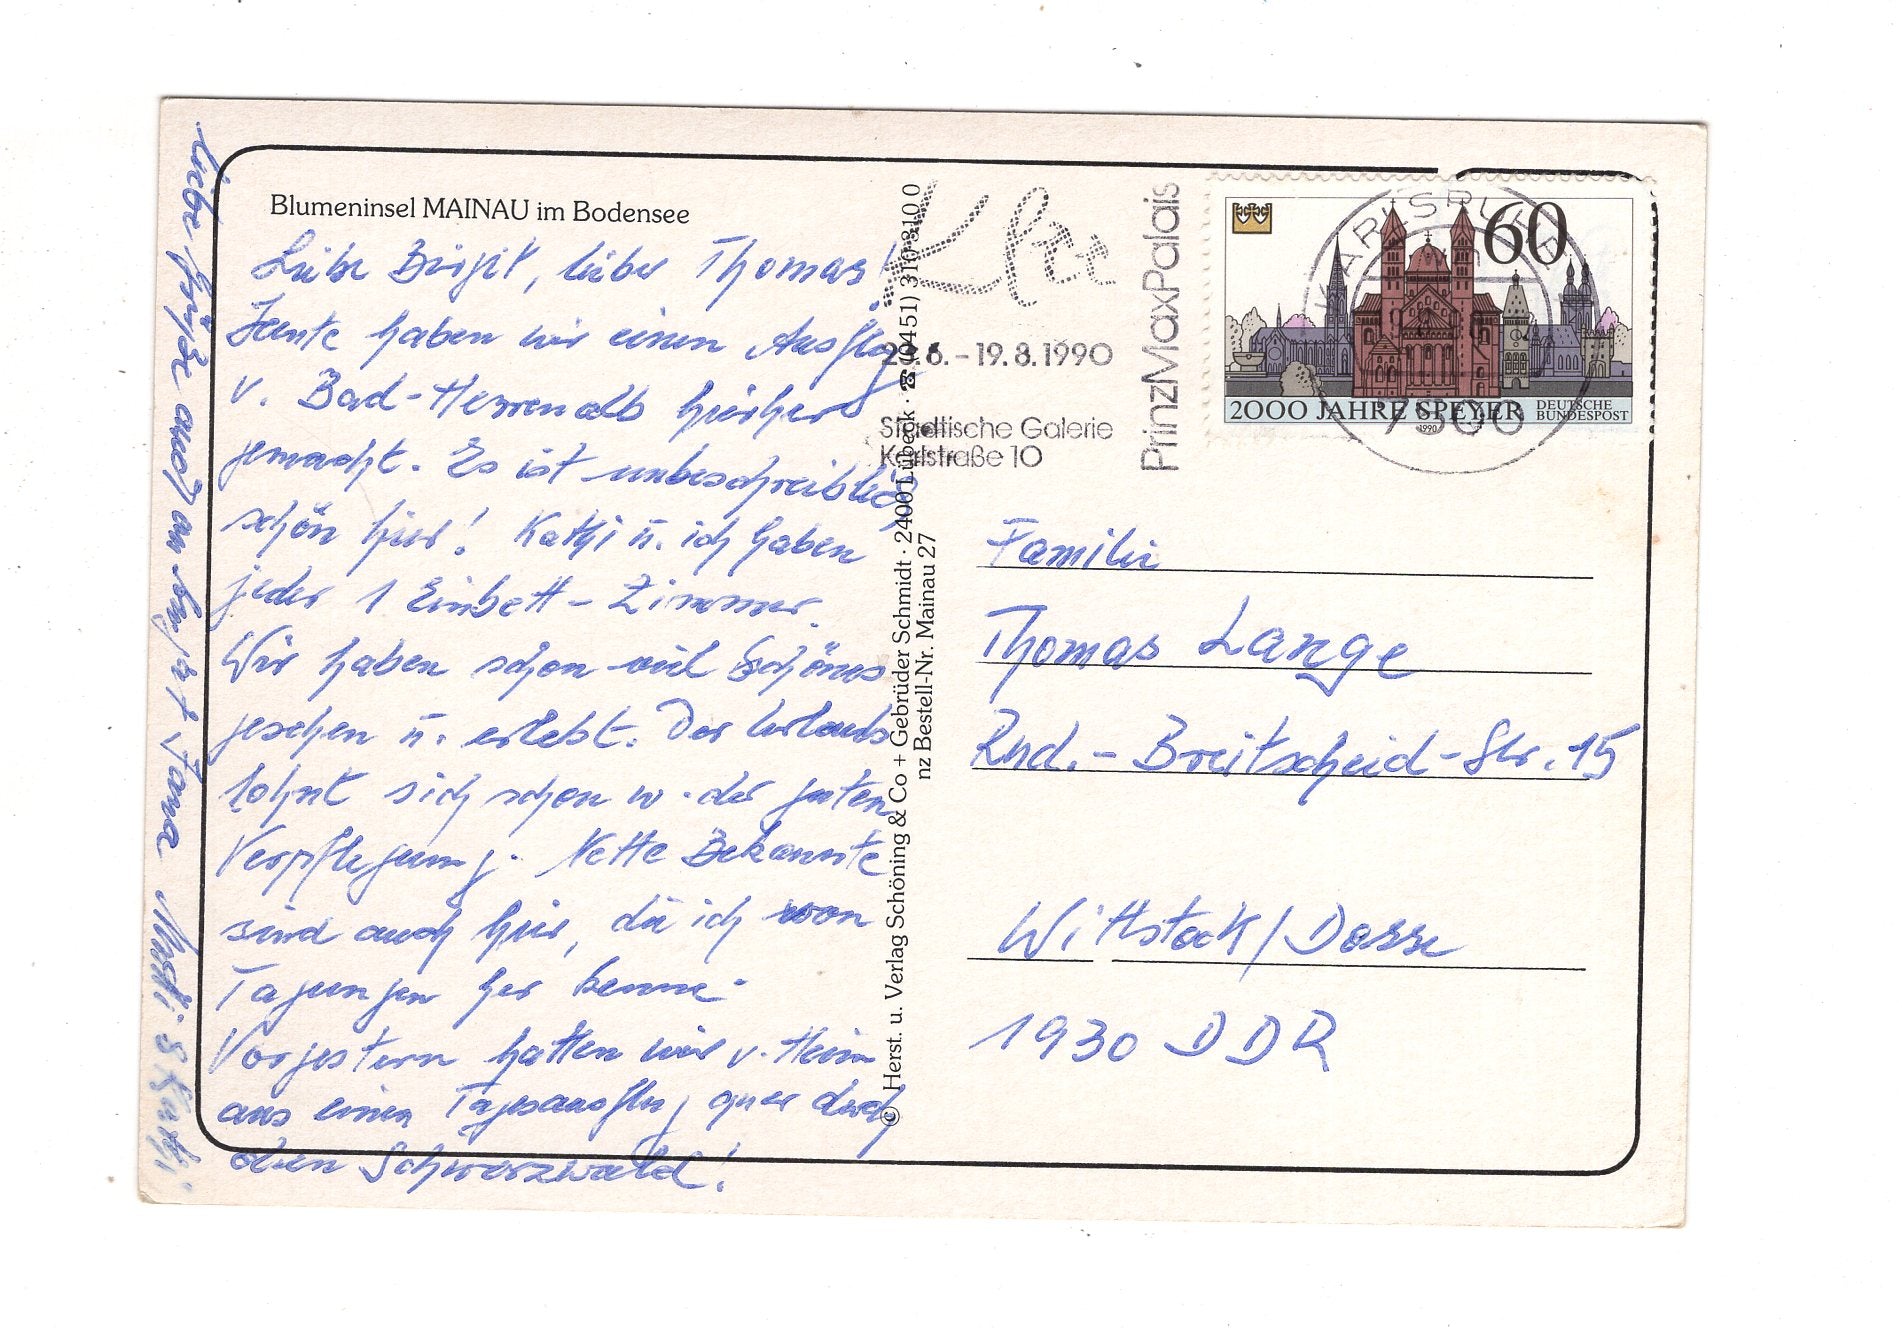 Blumeninsel MAINAU im Bodensee
Liebe Birgit, lieber Thomas!
Heute haben wir einen Ausflug
v. Bad-Herrenalb hierher
gemacht. Es ist unbeschreiblich
schön hier! Kathi u. ich haben
jeder 1 Einbett-Zimmer.
Wir haben schon viel Schönes
gesehen u. erlebt. Der Urlaub
lohnt sich schon w. der guten
Verpflegung. Nette Bekannte
sind auch hier, die ich von
Tagungen her kenne.
Vorgestern hatten wir v. Heim
aus einen Tagesausflug quer durch
den Schwarzwald!
Liebe Grüße auch an Jana Mutti & Kathi
© Herst. u. Verlag Schöning & Co + Gebrüder Schmidt · 2400 Lübeck · ☎ (0451) 310 310 0
nz Bestell-Nr. Mainau 27
Klee
29.6. - 19.8.1990
Städtische Galerie
Karlstraße 10
PrinzMaxPalais
KARLSRUHE
7500
60
2000 JAHRE SPEYER
DEUTSCHE
BUNDESPOST
1990
Familie
Thomas Lange
Rud.-Breitscheid-Str. 15
Wittstock/Dosse
1930 DDR